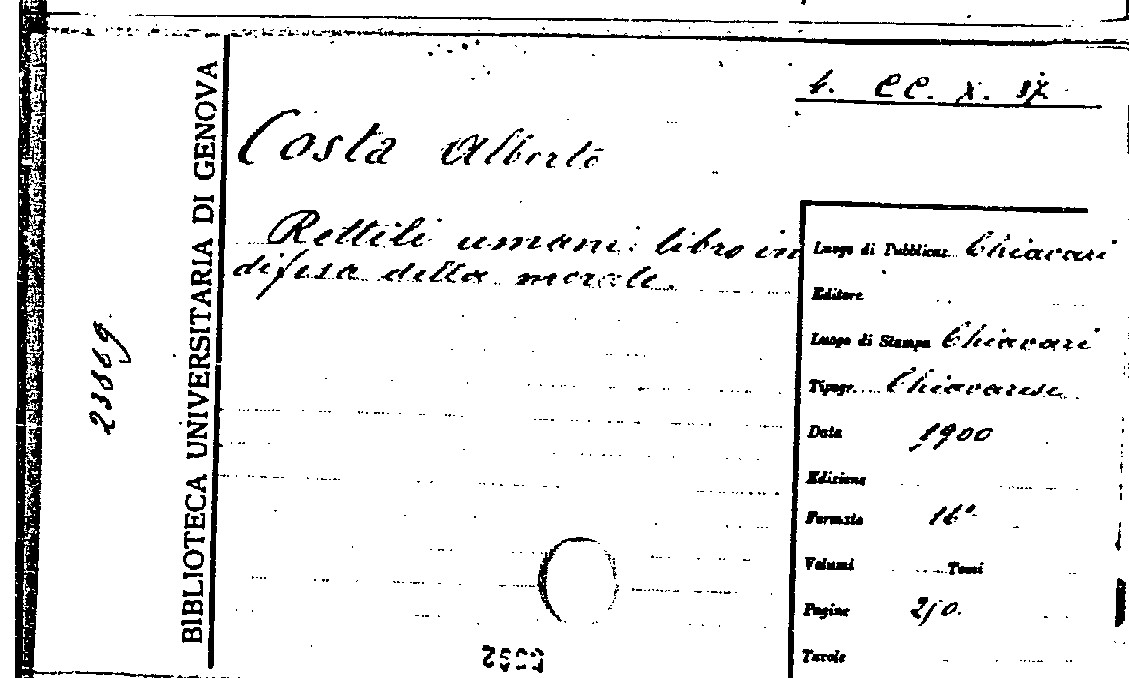 4. CC. X. 37
Costa Alberto
Rettili umani: libro in
difesa della morale.
BIBLIOTECA UNIVERSITARIA DI GENOVA
23869
Luogo di Pubblicaz. Chiavari
Editore
Luogo di Stampa Chiavari
Tipogr. Chiavarese
Data 1900
Edizione
Formato 16°
Volumi Tomi
Pagine 250.
Tavole